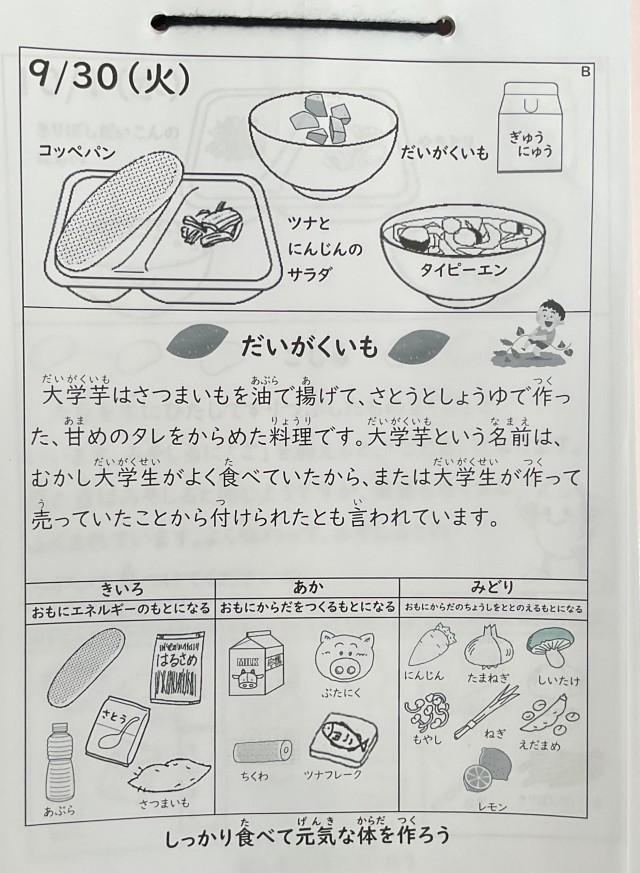 9/30(火)
B
コッペパン
だいがくいも
ぎゅう
にゅう
ツナと
にんじんの
サラダ
タイピーエン
だいがくいも
大学芋はさつまいもを油で揚げて、さとうとしょうゆで作っ
た、甘めのタレをからめた料理です。大学芋という名前は、
むかし大学生がよく食べていたから、または大学生が作って
売っていたことから付けられたとも言われています。
きいろ
おもにエネルギーのもとになる
はるさめ
さとう
あぶら
さつまいも
あか
おもにからだをつくるもとになる
MILK
ぶたにく
ちくわ
ツナフレーク
みどり
おもにからだのちょうしをととのえるもとになる
にんじん
たまねぎ
しいたけ
もやし
ねぎ
えだまめ
レモン
しっかり食べて元気な体を作ろう